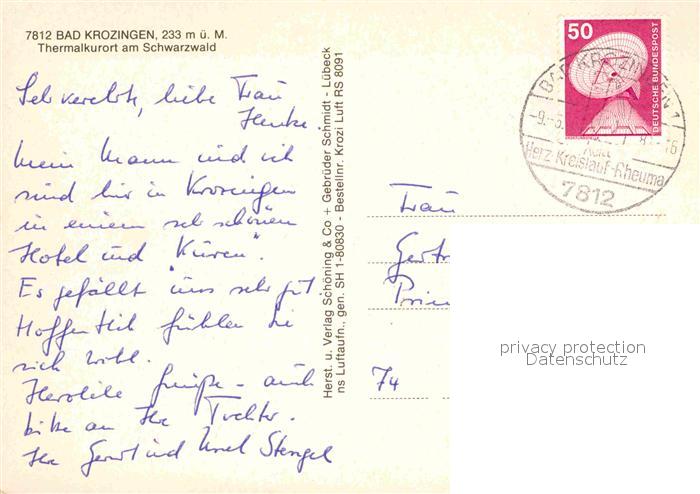 7812 BAD KROZINGEN, 233 m ü. M.
Thermalkurort am Schwarzwald
Sehr verehrte, liebe Frau
Henke.
Mein Mann und ich
sind hier in Krozingen
in einem sehr schönen
Hotel und "Kuren".
Es gefällt uns sehr gut.
Hoffentlich fühlen Sie
sich wohl.
Herzliche Grüße - auch
bitte an Ihre Tochter.
Ihre und Stengel
Herst. u. Verlag Schöning & Co + Gebrüder Schmidt - Lübeck
ns Luftaufn., gen. SH 1-80830 - Bestellnr. Krozi Luft RS 8091
50
DEUTSCHE BUNDESPOST
BAD KROZINGEN 1
Herz-Kreislauf-Rheuma
7812
Frau
Gertr
Prin
74
privacy protection
Datenschutz